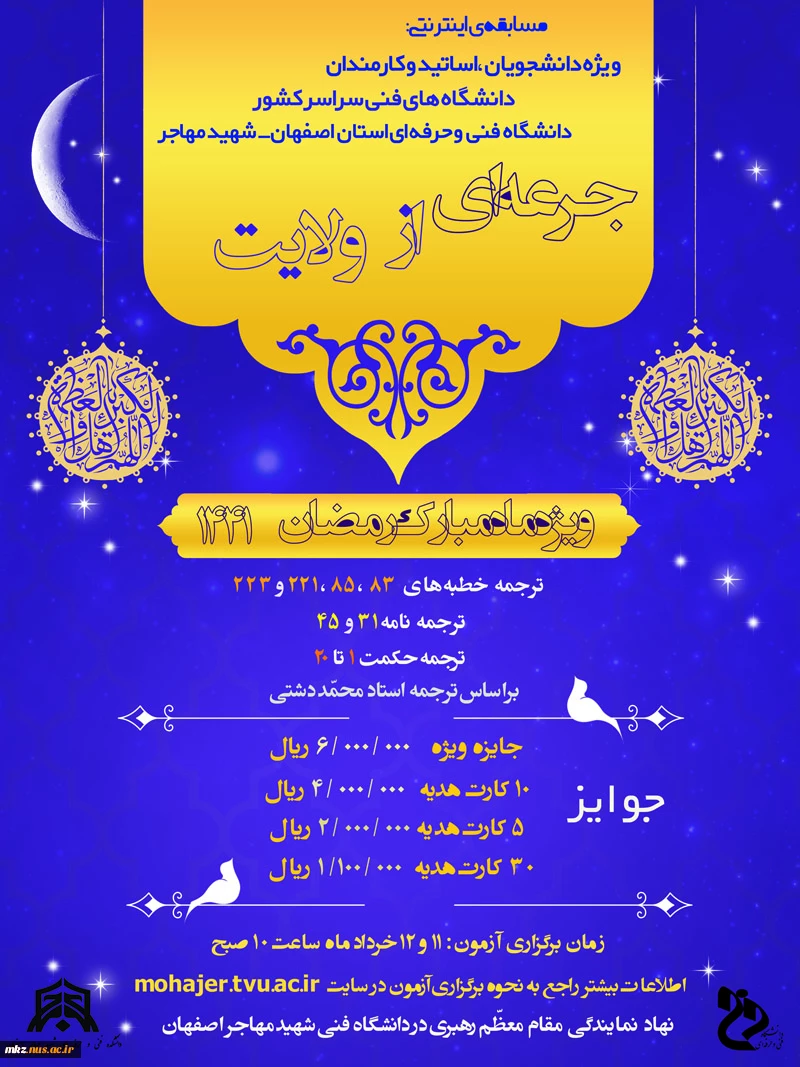 مسابقه‌ی اینترنتی:
ویژه دانشجویان، اساتید و کارمندان
دانشگاه های فنی سراسر کشور
دانشگاه فنی و حرفه ای استان اصفهان_ شهید مهاجر
جرعه‌ای از ولایت
ویژه ماه مبارک رمضان ۱۴۴۱
ترجمه خطبه های ۸۳ ،۸۵ ،۲۲۱ و ۲۲۳
ترجمه نامه ۳۱ و ۴۵
ترجمه حکمت ۱ تا ۲۰
براساس ترجمه استاد محمّد دشتی
جوایز
جایزه ویژه ۶/۰۰۰/۰۰۰ ریال
۱۰ کارت هدیه ۴/۰۰۰/۰۰۰ ریال
۵ کارت هدیه ۲/۰۰۰/۰۰۰ ریال
۳۰ کارت هدیه ۱/۱۰۰/۰۰۰ ریال
زمان برگزاری آزمون: ۱۱ و ۱۲ خرداد ماه ساعت ۱۰ صبح
اطلاعات بیشتر راجع به نحوه برگزاری آزمون در سایت mohajer.tvu.ac.ir
نهاد نمایندگی مقام معظّم رهبری در دانشگاه فنی شهید مهاجر اصفهان
mkz.nus.ac.ir